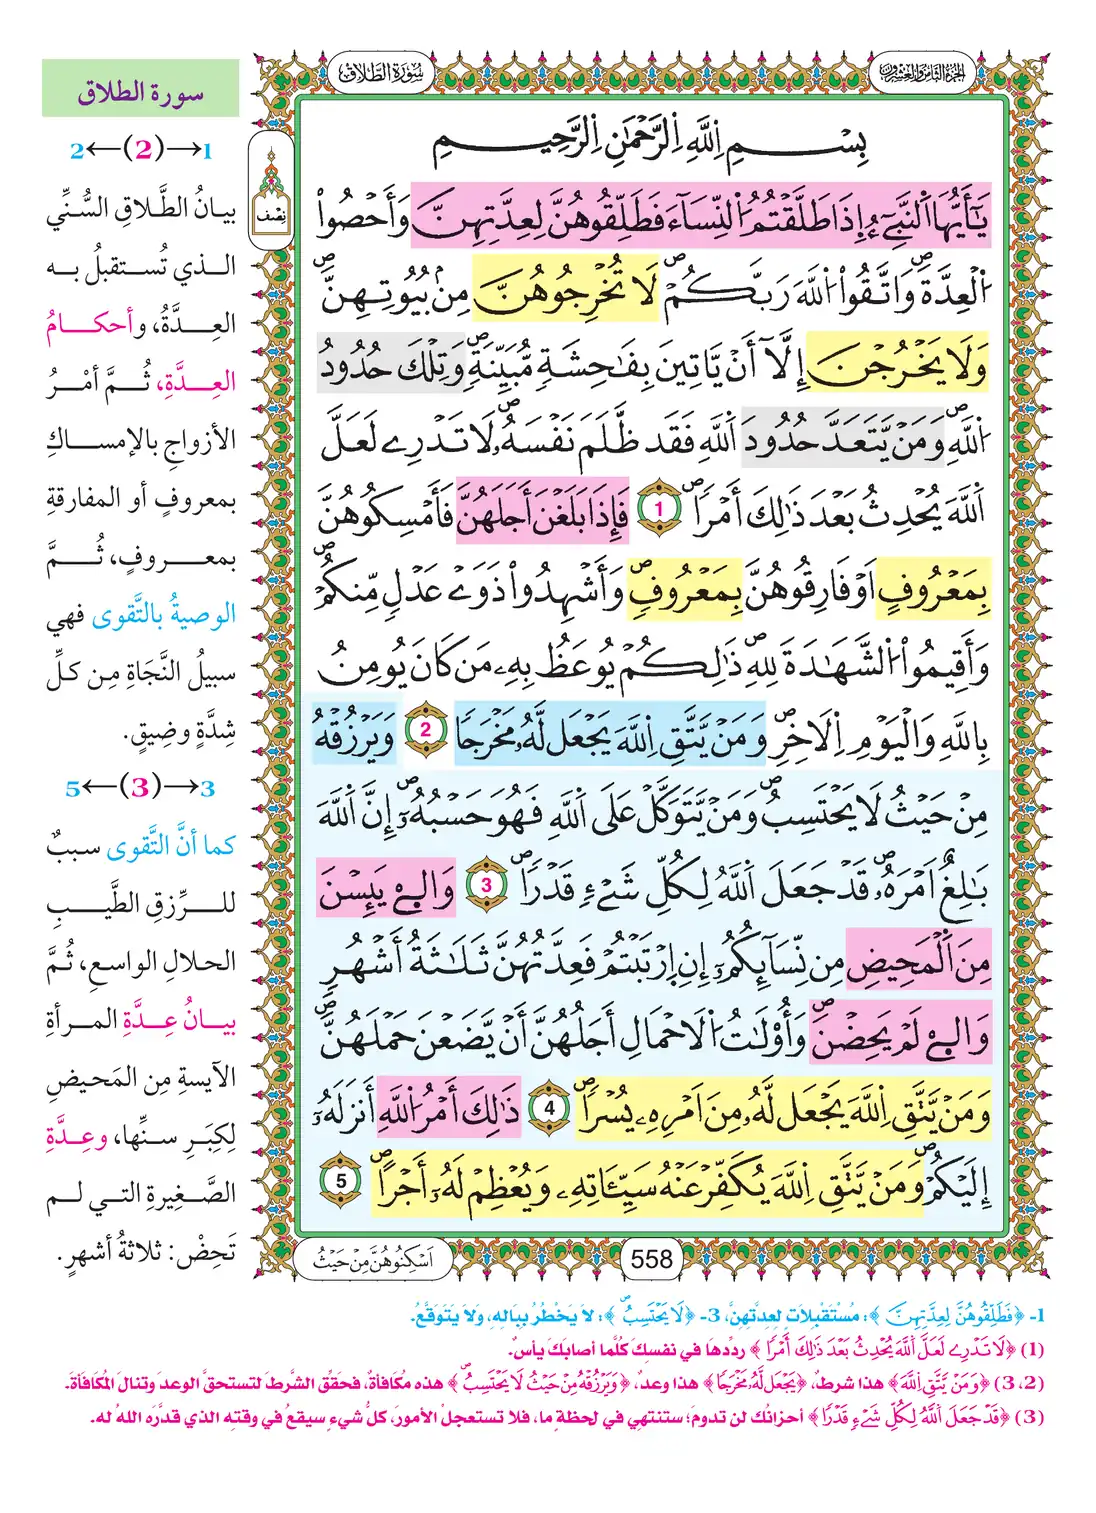 الجزء الثامن والعشرون
سورة الطلاق
بِسْمِ اِللَّهِ اِلرَّحْمَٰنِ اِلرَّحِيمِ
يَٰٓأَيُّهَا اَلنَّبِيٓءُ إِذَا طَلَّقْتُمُ اُلنِّسَآءَ فَطَلِّقُوهُنَّ لِعِدَّتِهِنَّ وَأَحْصُواْ
اُلْعِدَّةَۖ وَاتَّقُواْ اُللَّهَ رَبَّكُمْۖ لَا تُخْرِجُوهُنَّ مِنۢ بُيُوتِهِنَّۖ
وَلَا يَخْرُجْنَ إِلَّآ أَنْ يَّاتِينَ بِفَٰحِشَةٍ مُّبَيِّنَةٍۖ وَتِلْكَ حُدُودُ
اُللَّهِۖ وَمَنْ يَّتَعَدَّ حُدُودَ اَللَّهِ فَقَد ظَّلَمَ نَفْسَهُۥۖ لَا تَدْرِے لَعَلَّ
اَللَّهَ يُحْدِثُ بَعْدَ ذَٰلِكَ أَمْراٗۖ 1 فَإِذَا بَلَغْنَ أَجَلَهُنَّ فَأَمْسِكُوهُنَّ
بِمَعْرُوفٍ اَوْ فَارِقُوهُنَّ بِمَعْرُوفٖۖ وَأَشْهِدُواْ ذَوَےْ عَدْلٖ مِّنكُمْۖ
وَأَقِيمُواْ اُلشَّهَٰدَةَ لِلهِۖ ذَٰلِكُمْ يُوعَظُ بِهِۦ مَن كَانَ يُومِنُ
بِاللَّهِ وَالْيَوْمِ اِلَاخِرِۖ وَمَنْ يَّتَّقِ اِللَّهَ يَجْعَل لَّهُۥ مَخْرَجاٗ 2 وَيَرْزُقْهُ
مِنْ حَيْثُ لَا يَحْتَسِبُۖ وَمَنْ يَّتَوَكَّلْ عَلَى اَللَّهِ فَهُوَ حَسْبُهُۥٓۖ إِنَّ اَللَّهَ
بَٰلِغٌ اَمْرَهُۥۖ قَدْ جَعَلَ اَللَّهُ لِكُلِّ شَےْءٖ قَدْراٗۖ 3 وَالِےْ يَئِسْنَ
مِنَ اَلْمَحِيضِ مِن نِّسَآئِكُمُۥٓ إِنِ اِرْتَبْتُمْ فَعِدَّتُهُنَّ ثَلَٰثَةُ أَشْهُرٖ
وَالِےْ لَمْ يَحِضْنَۖ وَأُوْلَٰتُ اُلَاحْمَالِ أَجَلُهُنَّ أَنْ يَّضَعْنَ حَمْلَهُنَّۖ
وَمَنْ يَّتَّقِ اِللَّهَ يَجْعَل لَّهُۥ مِنَ اَمْرِهِۦ يُسْراٗۖ 4 ذَٰلِكَ أَمْرُ اُللَّهِ أَنزَلَهُۥٓ
إِلَيْكُمْۖ وَمَنْ يَّتَّقِ اِللَّهَ يُكَفِّرْ عَنْهُ سَيِّـَٔاتِهِۦ وَيُعْظِمْ لَهُۥٓ أَجْراًۖ 5
اَسْكِنُوهُنَّ مِنْ حَيْثُ
558
نصف
سورة الطلاق
1→(2)←2
بيانُ الطَّلاقِ السُّنِّي
الذي تُستقبلُ به
العِدَّةُ، وأحكامُ
العِدَّةِ، ثُمَّ أمْرُ
الأزواجِ بالإمساكِ
بمعروفٍ أو المفارقةِ
بمعروفٍ، ثُمَّ
الوصيةُ بالتَّقوى فهي
سبيلُ النَّجَاةِ مِن كلِّ
شِدَّةٍ وضِيقٍ.
3→(3)←5
كما أنَّ التَّقوى سببٌ
للرِّزقِ الطَّيبِ
الحلالِ الواسعِ، ثُمَّ
بيانُ عِدَّةِ المرأةِ
الآيسةِ مِن المَحيضِ
لِكِبَرِ سنِّها، وعِدَّةِ
الصَّغِيرةِ التي لم
تَحِضْ: ثلاثةُ أشهرٍ.
1- ﴿فَطَلِّقُوهُنَّ لِعِدَّتِهِنَّ﴾: مُسْتَقْبِلاتٍ لِعِدَّتِهِنَّ، 3- ﴿لَا يَحْتَسِبُۖ﴾: لا يَخْطُرُ بِبَالِهِ، ولا يَتَوَقَّعُ.
(1) ﴿لَا تَدْرِے لَعَلَّ اَللَّهَ يُحْدِثُ بَعْدَ ذَٰلِكَ أَمْراٗ﴾ ردِّدها في نفسِكَ كُلَّما أصابَكَ يأسٌ.
(2، 3) ﴿وَمَنْ يَّتَّقِ اِللَّهَ﴾ هذا شرطٌ، ﴿يَجْعَل لَّهُۥ مَخْرَجاٗ﴾ هذا وعدٌ، ﴿وَيَرْزُقْهُ مِنْ حَيْثُ لَا يَحْتَسِبُۖ﴾ هذه مكافأةٌ، فحقِّق الشَّرطَ لتستحقَّ الوعدَ وتنالَ المكافأةَ.
(3) ﴿قَدْ جَعَلَ اَللَّهُ لِكُلِّ شَےْءٖ قَدْراٗ﴾ أحزانُك لن تدومَ؛ ستنتهي في لحظةٍ ما، فلا تستعجلْ الأمورَ، كلُّ شيءٍ سيقعُ في وقتِه الذي قدَّرَه اللهُ له.